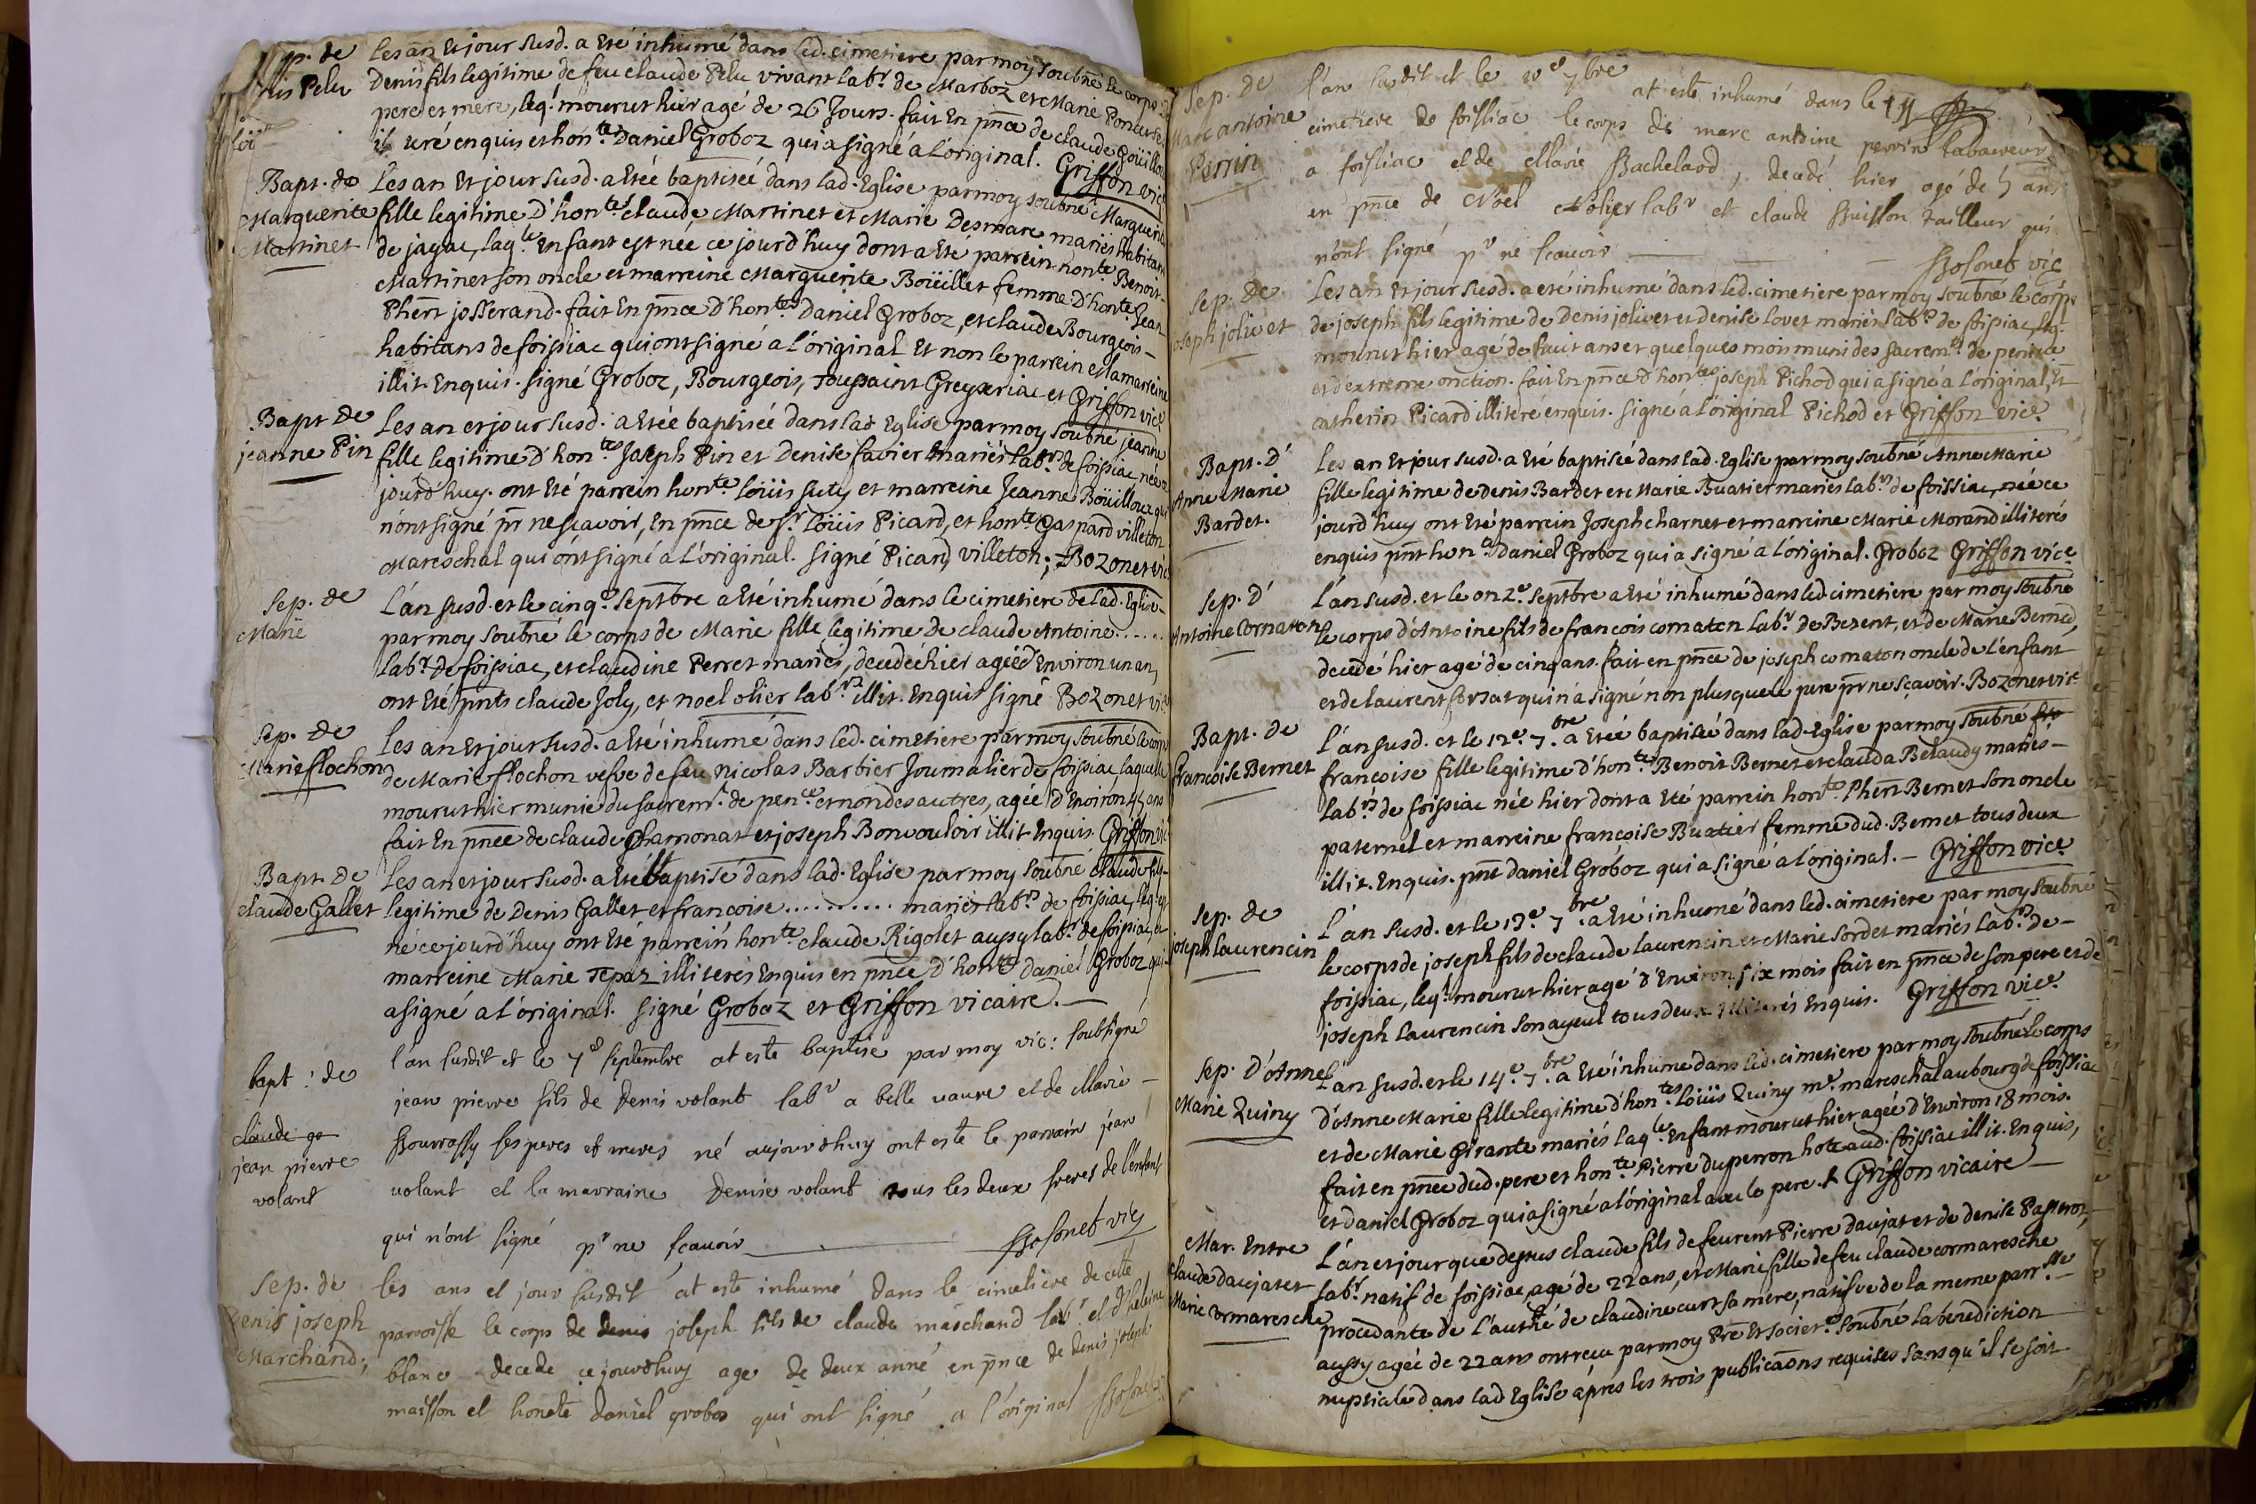 Les an et jour susd. a eté inhumé dans led. cimetiere par moy soubné le corps de
Denis fils legitime de feu claude Pelu vivant labr. de Marboz et Marie
pere et mere, leq. mourut hier agé de 26 Jours. fait En pnce de claude Goüilloux
enquis et honte. Daniel Groboz qui a signé á L'original. Griffon vice
Bapt. de
Marguerite
Martinet
Les an Et jour susd. a Etée baptisée dans lad. Eglise par moy soubné Marguerite
fille legitime d'hontes. claude Martinet et Marie Desmare mariés habitans
de jayac, laqle. Enfant est née ce jourd'huy dont a Eté parrein honte. Benoit
Martinet son oncle et marreine Marguerite Boüillet femme d'honte. Jean
Phert josserand. fait En pnce d'hontes. Daniel Groboz, et claude Bourgeois
habitans de foissiac qui ont signé a l'original Et non le parrein et la marreine
illit. Enquis. signé Groboz, Bourgeois, toussaint et Griffon vice
Bapt de
jeanne Pin
Les an et jour susd. a Etée baptisée dans lad Eglise par moy soubné jeanne
fille legitime d'hontes. Joseph Pin et Denise favier mariés labrs. de foissiac, née a
jourd'huy. ont Eté parrein honte. loüis futy et marreine Jeanne Boüilloux qui
n'ont signé pr ne sçavoir, En pnce de sr. loüis Picard, et honte. Gaspard villeton
Mareschal qui ont signé a L'original. signé Picard, villeton; Bozonet vic
Sep. de
Marie
L'an susd. et le cinqe. septbre a Eté inhumé dans le cimetiere de lad. Eglise
par moy soubné le corps de Marie fille legitime de claude Antoine.......
labr. de foissiac, et claudine Perret mariés, decedée hier agée d'Environ un an,
ont Eté pnts claude Joly, et noel olier labrs. illit. Enquis signé Bozonet vic
Sep. de
Marie flochon
Les an Et jour susd. a Eté inhumé dans led. cimetiere par moy soubné le corps
de Marie flochon vefve de feu Nicolas Barbier Journalier de foissiac laquelle
mourut hier munie du sacremt. de pence. et non des autres, agée d'Environ 45 ans
fait En pnce de claude Chamonat et joseph Bonvouloir illit Enquis Griffon vic
Bapt. de
claude Gallet
Les an et jour susd. a Eté Baptisé dans lad. Eglise par moy soubné claude fils
legitime de Denis Gallet et francoise .......... mariés labrs. de foissiac, leql. est
né ce jourd'huy ont Eté parrein honte. claude Rigolet aussy labr. de foissiac, et
marreine Marie Tepaz illiterés Enquis en pnce d'honte Daniel Groboz qui
a signé a l'original. signé Groboz et Griffon vicaire.
bapt : de
claude ga
jean pierre
volant
l'an susdit et le 7e septembre at esté baptise par moy vic: soubsigné
jean pierre fils de denis volant labr a belle vavre et de Marie
ses peres et meres né aujourdhuy ont esté le parrain jean
volant et la marraine denise volant tous les deux freres de l'enfant
qui n'ont signé pr ne scavoir Bosonet vic
Sep. de
Denis joseph
Marchand;
les ans et jour susdit at esté inhumé dans le cimetiere de cette
parroisse le corps de denis joseph fils de claude marchand labr et d'helaine
blanc decede ce jourdhuy age de deux anné en pnce de denis joseph
maisson et honete daniel grobos qui ont signé a l'original Bosonet
Sep. de
Marc antoine
Perrin
l'an susdit et le 10e 7bre at esté inhumé dans le
cimetiere de foissiac le corps de marc antoine perrin
a foissiac et de Marie Bachelard, decedé hier agé de 5 ans
en pnce de Noel Nolier labr et claude Buisson tailleur qui
n'ont signé pr ne scavoir Bosonet vic
Sep. de
joseph jolivet
Les an Et jour susd. a eté inhumé dans led. cimetiere par moy soubné le corps
de joseph fils legitime de Denis jolivet et denise lovet mariés labrs de foissiac, leq.
mourut hier agé de huit ans et quelques mois muni des sacremts. de penitce
et d'extreme onction. fait En pnce d'hontes joseph Pichod qui a signé a l'original, Et
catherin Picard illiteré enquis. signé a l'original Pichod et Griffon vice.
Bapt. d'
Anne Marie
Bardet.
Les an Et jour susd. a Eté baptisée dans lad. Eglise par moy soubné Anne Marie
fille legitime de Denis Bardet et Marie Buatier mariés labrs de foissiac, née ce
jourd'huy ont Eté parrein Joseph charnet et marreine Marie Morand illiterés
enquis pnt honte. Daniel Groboz qui a signé a l'original. Groboz Griffon vice
Sep. d'
Antoine Cornaton
L'an susd. et le onze. septbre a Eté inhumé dans led. cimetiere par moy soubné
le corps d'Antoine fils de francois cornaton labr. de Bezent, et de Marie Berned,
decedé hier agé de cinq ans. fait en pnce de joseph cornaton oncle de l'enfant
et de laurent forsat qui n'a signé non plus que le pere pr ne sçavoir. Bozonet vic
Bapt. de
francoise Bernet
L'an susd. et le 12e. 7bre. a Etée baptisée dans lad. Eglise par moy soubné
françoise fille legitime d'hontes. Benoit Bernet et clauda Belaudy mariés
labrs. de foissiac née hier dont a Eté parrein honte. Phert Bernet son oncle
paternel et marreine françoise Buatier femme dud. Bernet tous deux
illit. Enquis. pnt daniel Gróboz qui a signé a l'original.— Griffon vice
Sep. de
joseph laurencin
L'an susd. et le 13e. 7bre. a Eté inhumé dans led. cimetiere par moy soubné
le corps de joseph fils de claude laurencin et Marie sordet mariés labrs. de
foissiac, leq. mourut hier agé d'Environ six mois fait en pnce de son pere et de
joseph laurencin son ayeul tous deux illiterés Enquis. Griffon vice.
Sep. d'Anne
Marie Quiny
L'an susd. et le 14e. 7bre. a Eté inhumé dans led. cimetiere par moy soubné le corps
d'Anne Marie fille legitime d'hontes. loüis Quiny me. mareschal au bourg de foissiac
et de Marie Girante mariés laqle. Enfant mourut hier agée d'Environ 18 mois.
fait en pnce dud. pere et honte. Pierre duperron hote aud. foissiac illit. Enquis,
et daniel Groboz qui a signé a l'original avec le pere. Griffon vicaire
Mar. Entre
claude daujat et
Marie Cormaresche
L'an et jour que dessus claude fils de feu rent Pierre daujat et de denise Passeroz,
labr. natif de foissiac, agé de 22 ans, et Marie fille de feu claude cormaresche
procedante de l'authé de claudine curt sa mere, natifve de la meme parrsse
aussy agée de 22 ans ont recu par moy Pre Et societe. soubné la benediction
nuptiale dans lad Eglise áprés les trois publicaons requises sans qu'il se soit